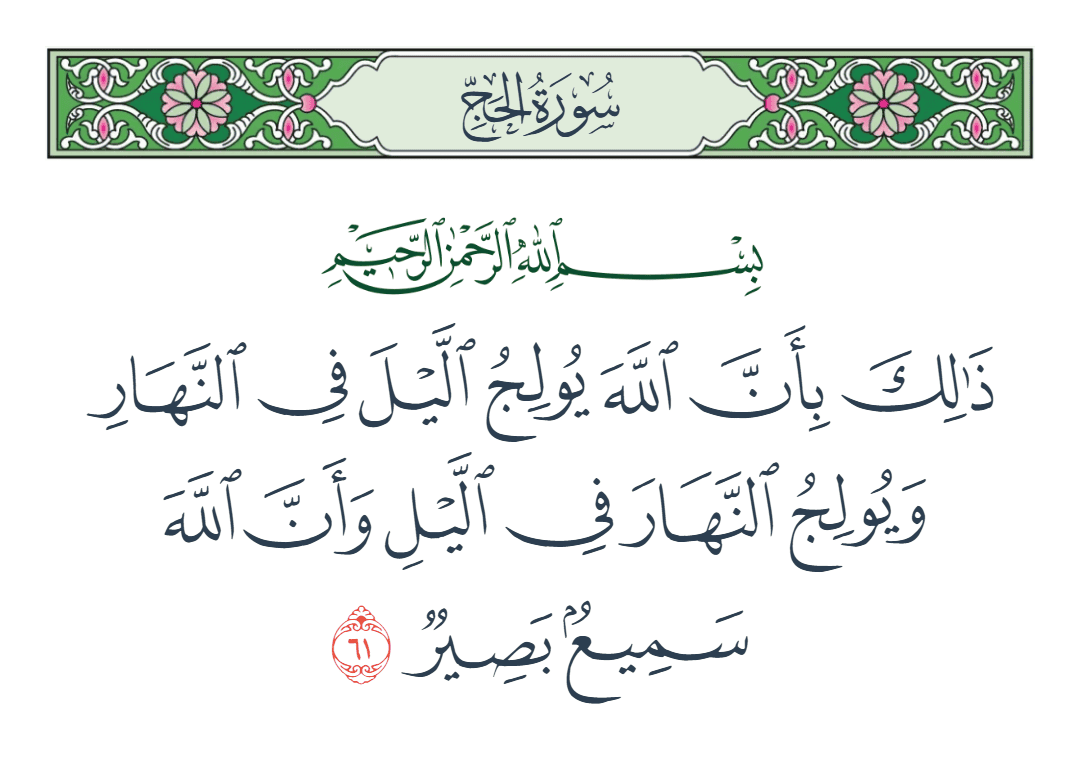 سُورَةُ الحَجِّ
بِسْمِ ٱللَّهِ ٱلرَّحْمَٰنِ ٱلرَّحِيمِ
ذَٰلِكَ بِأَنَّ ٱللَّهَ يُولِجُ ٱلَّيْلَ فِى ٱلنَّهَارِ
وَيُولِجُ ٱلنَّهَارَ فِى ٱلَّيْلِ وَأَنَّ ٱللَّهَ
سَمِيعٌۢ بَصِيرٌ ٦١